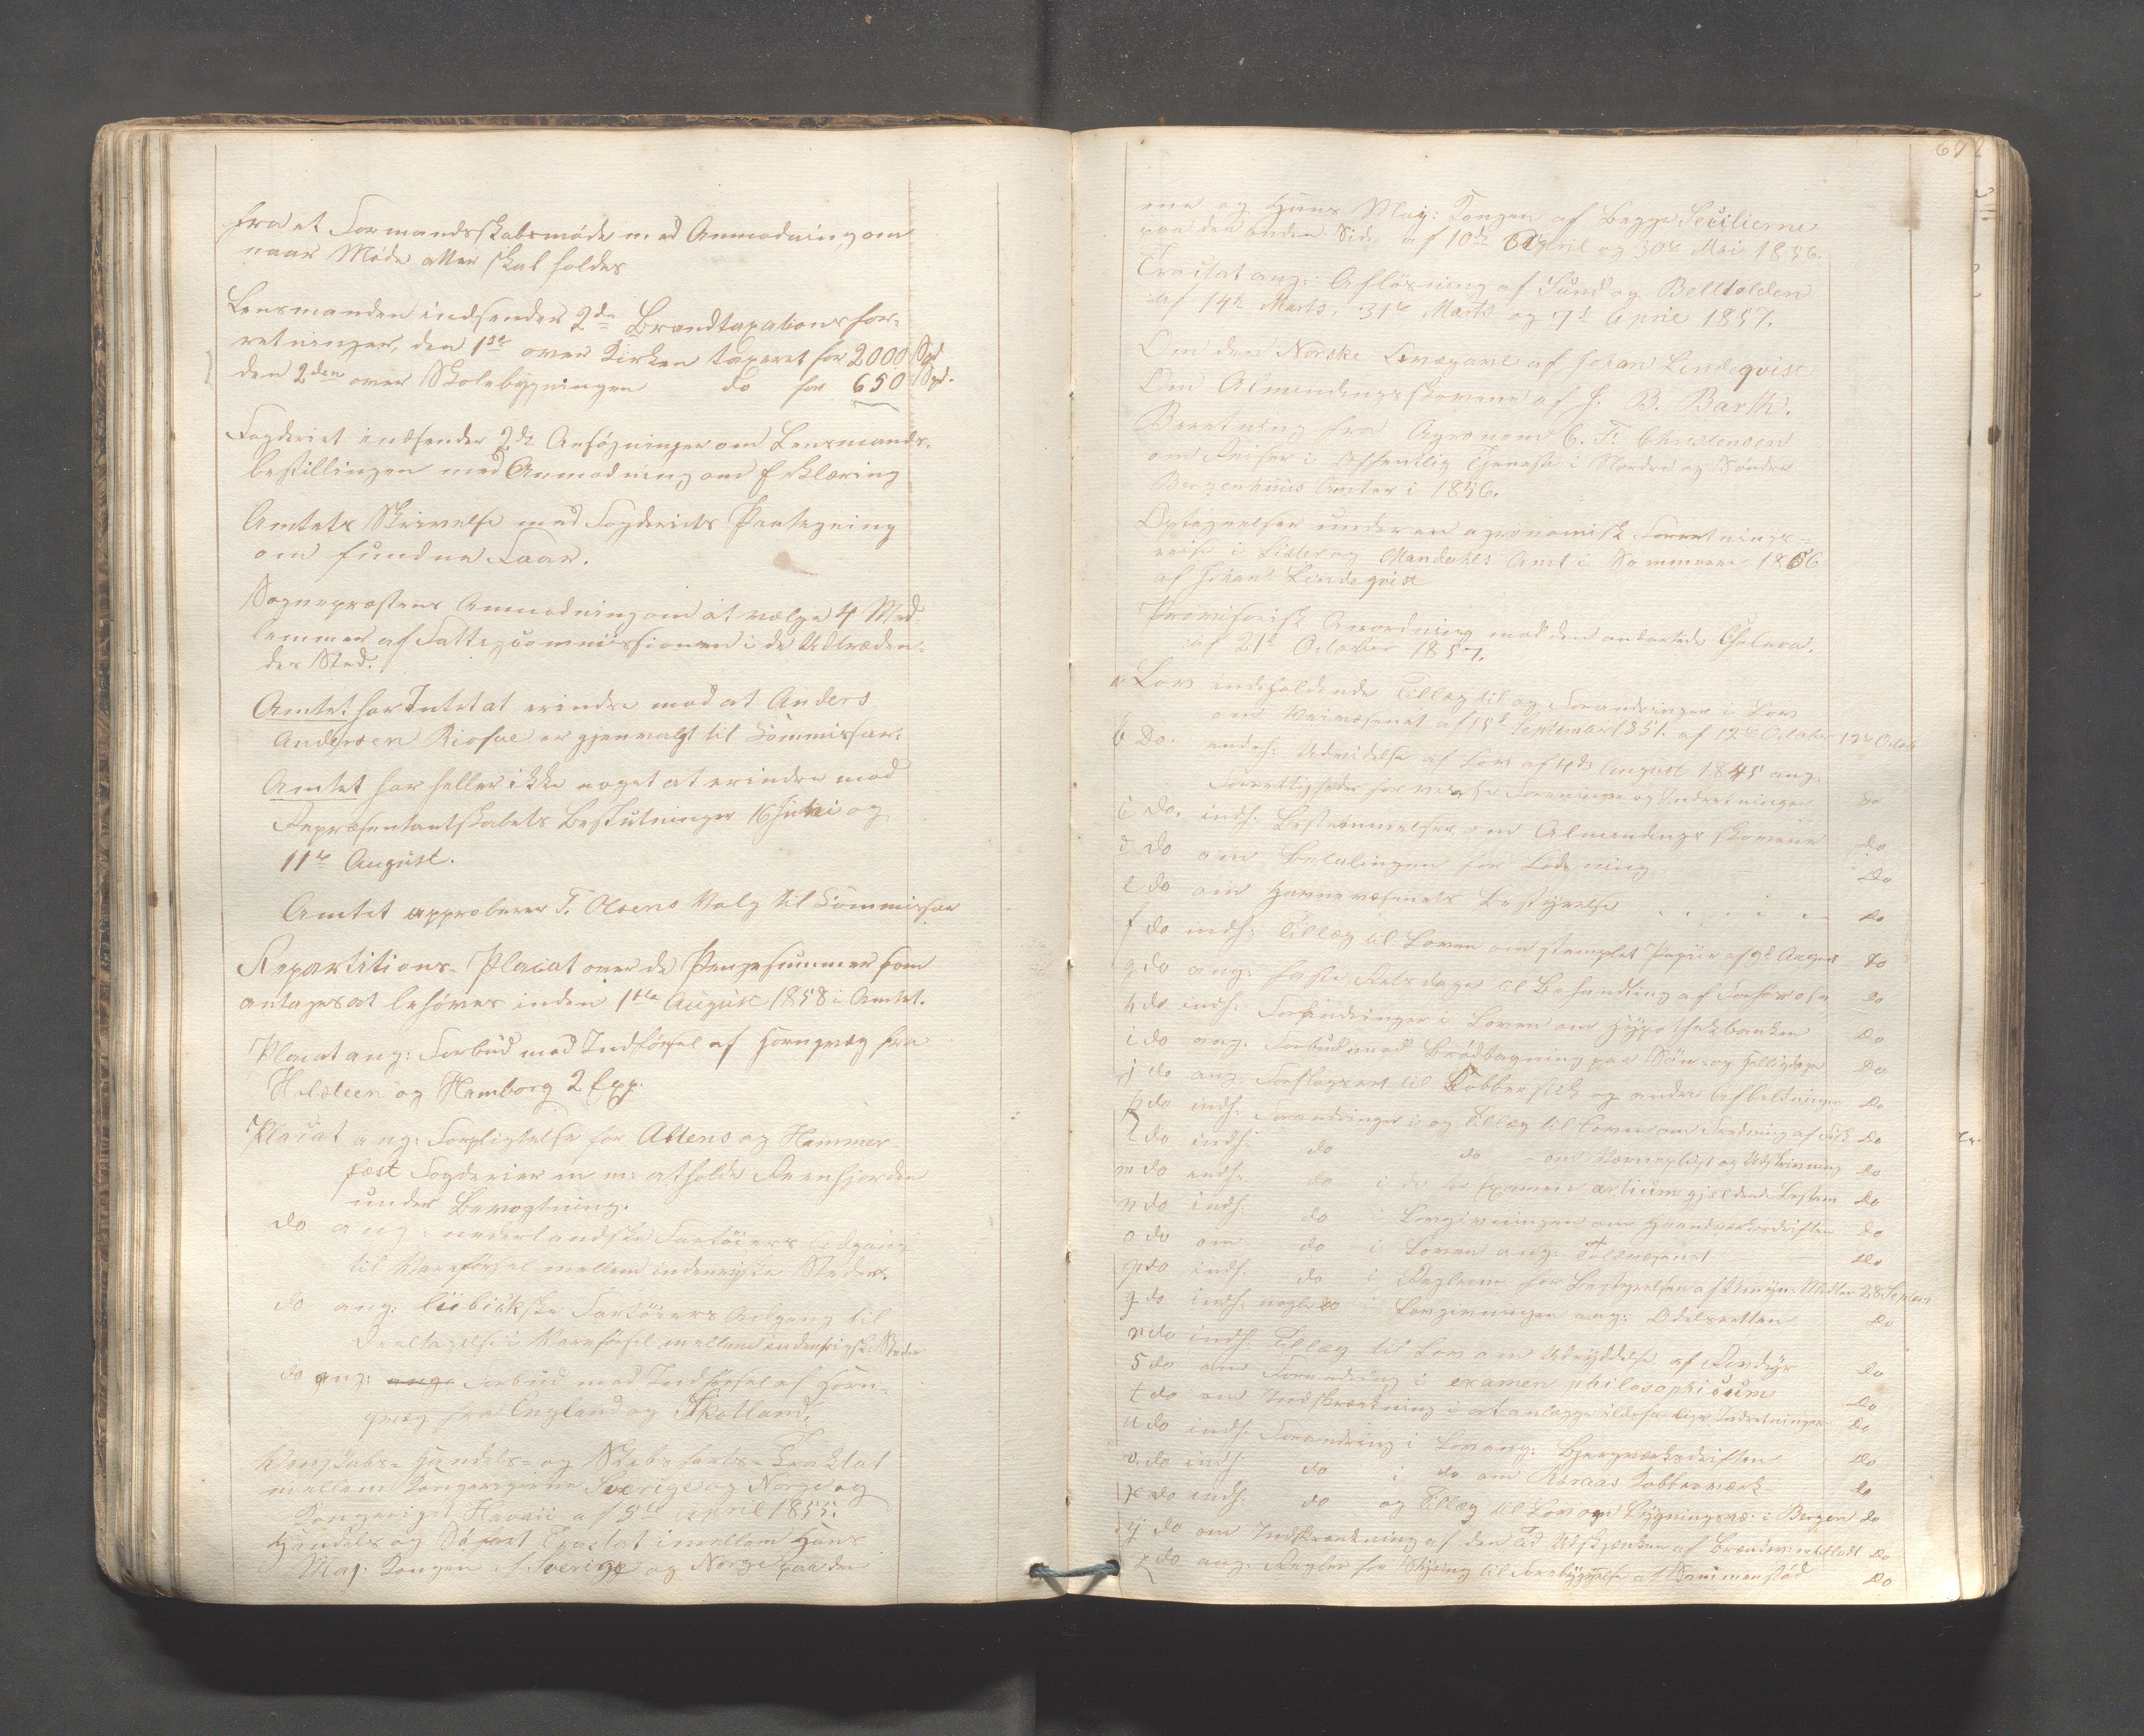 fra et Formandsskabsmøde med Anmodning om
naar Møde atter skal holdes
Lensmanden indsender 2de Brandtaxationsfor-
retninger, den 1ste over Kirken taxeret for 2000 Spd
den 2den over Skolebygningen do for 650 Spd.
Fogderiet indsender 2de Ansøgninger om Lensmands-
bestillingen med Anmodning om Erklæring
Amtets Skrivelse med Fogderiets Paategning
om fundne Faar.
Sognepræstens Anmodning om at vælge 4 Med-
lemmer af Fattigcommissionen i de Udtræden-
des Sted.
Amtet har Intet at erindre mod at Anders
Andersen er gjenvalgt til Commissar.
Amtet har heller ikke noget at erindre mod
Repræsentantskabets Beslutninger 16 Juni og
11te August.
Amtet approberer T. Olsens Valg til Commissær
Repartitions-Placat over de Pengesummer som
antages at behøves inden 1ste August 1858 i Amtet.
Placat ang: Forbud mod Indførsel af Hornqvæg fra
Holsteen og Hamborg 2 Exp.
Placat ang: Forpligtelse for Altens og Hammer-
fest Fogderier m m: at holde Reensfjorden
under Bevogtning.
do ang: nederlandske Fartøiers Adgang
til Vareførsel mellem indenrigske Steder.
do ang: lübikske Fartøiers Adgang til
Deeltagelse i Vareførsel mellem indenrigske Steder
do ang: Forbud mod Indførsel af Horn-
qvæg fra England og Skotland.
Venskabs- Handels- og Skibsfarts-Traktat
mellem Kongerigerne Sverige og Norge og
Kongeriget Havaii af 5te April 1855.
Handels og Søfart Tractat imellem Hans
Maj: Kongen af Sverige og Norge paa den
67
ene og Hans Maj: Kongen af begge Secilierne
paa den anden Side af 10de April og 30te Mai 1856.
Tractat ang: Afløsning af Sund og Belttolden
af 14de Marts, 31te Marts og 7de April 1857.
Om den Norske af Johan Lindeqvist
Om Almindingsskovene af J. B. Barth.
Beretning fra Agronom C. F. Christensen
om Reiser i Offentlig Tjeneste i Nordre og Søndre
Bergenhuus Amter i 1856.
Optegnelser under en agronomisk Forretnings-
reise i Lister og Mandahls Amt i Sommeren 1856
af Johan Lindeqvist
Provisorisk Anordning mod den ondartede Cholera.
af 21de October 1857.
a Lov indeholdende Tillæg til og Forandringer i Lov
om Veivæsenet af 15de September 1851. af 12te October 12te Octob
b Do. indeh: Udvidelse af Lov af 4de August 1845 ang:
Forrettigheder for visse Foreninger og Indretninger do
c do. indh: Bestemmelser om Almindings skovene do
d do om Betalingen for Lodsning do
e do om Havnevæsenets Bestyrelse do
f do indh: Tillæg til Loven om stemplet Papiir af 9de August do
g do ang: faste Retsdage til Behandling af do
h do indh: Forandringer i Loven om Hypothekbanken do
i do ang: Forbud mod Brødbagning paa Søn- og Helligdage do
j do ang: til Kobberstik og andre Afbildninger do
k do indh: Forandringer i og Tillæg til Loven om Fredning af do
l do indh: do do om Værnepligt og Udskrivning do
m do indh: do i de for Examen artium gjældende Bestem do
n do indh: do i Lovgivningen om Haandværksdriften do
o do om do i Loven ang: do
p do indh: do i Reglerne for Bestyrelsen af Midler 28 Septem
q do indh: nogle do i Lovgivningen ang: Odelsretten do
r do indh: Tillæg til Lov om Udryddelse af Rovdyr do
s do om Forandring i examen philosophicum do
t do om Indskrænkning i at anlægge ildsfarlige Indretninger do
u do indh: Forandring i Lov ang: Bjergværksdriften do
v do indh: do i do om Røraas Kobberværk do
x do indh: do og Tillæg til Lov om Bygningsvæ: i Bergen do
y do om Indskrænkning af den Tid Udskjænken af Brændeviin er tilladt do
z do ang: Regler for Skydning til Forebyggelse af Sammenstød do